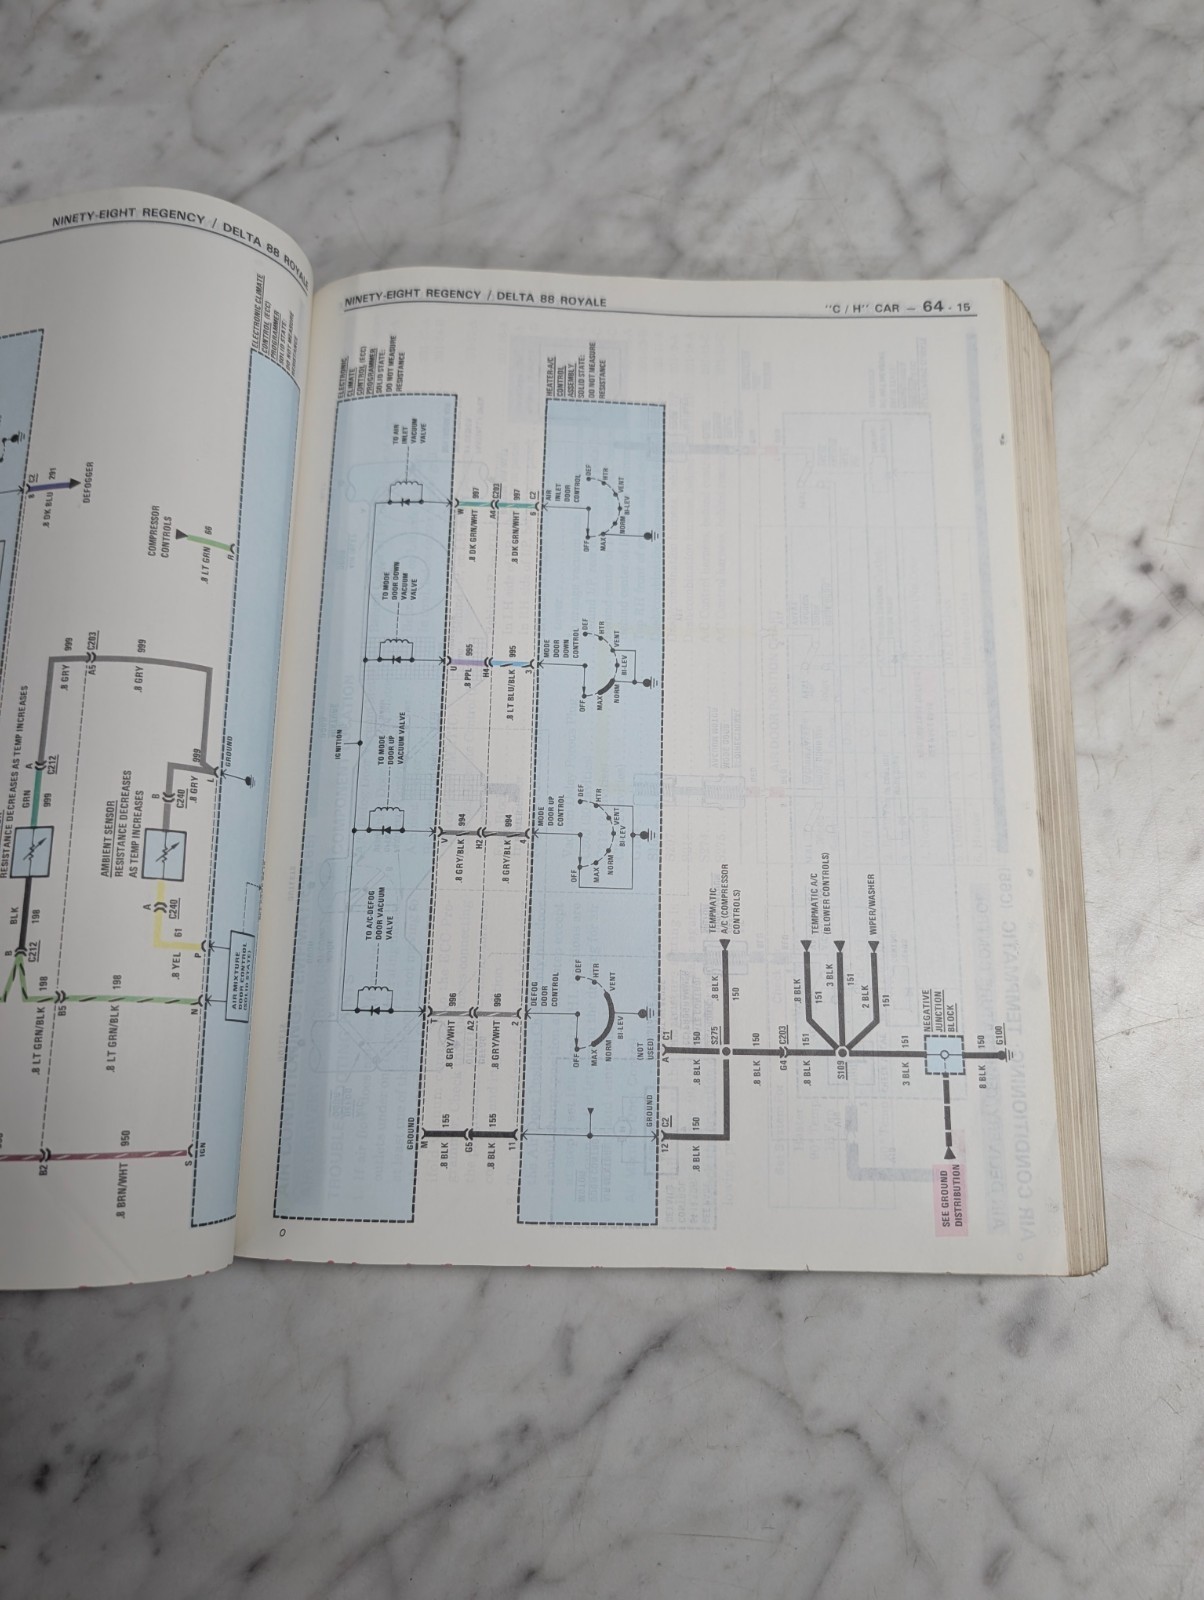 NINETY-EIGHT REGENCY / DELTA 88 ROYALE
ELECTRONIC CLIMATE
CONTROL (ECC)
PROGRAMMER
SOLID STATE:
DO NOT MEASURE
RESISTANCE
8
C2
.8 DK BLU
291
DEFOGGER
COMPRESSOR
CONTROLS
.8 LT GRN
66
R
RESISTANCE DECREASES AS TEMP INCREASES
A
C212
GRN
999
.8 GRY
999
A5
C203
.8 GRY
999
AMBIENT SENSOR
RESISTANCE DECREASES
AS TEMP INCREASES
B
C240
.8 GRY
999
L
GROUND
BLK
198
B
C212
A
C240
.8 YEL
61
P
.8 LT GRN/BLK
198
B5
.8 LT GRN/BLK
198
N
AIR MIXTURE
DOOR CONTROL
(SOLID STATE)
B2
.8 BRN/WHT
950
S
IGN
NINETY-EIGHT REGENCY / DELTA 88 ROYALE
"C / H" CAR — 64 - 15
ELECTRONIC
CLIMATE
CONTROL (ECC)
PROGRAMMER
SOLID STATE:
DO NOT MEASURE
RESISTANCE
HEATER-A/C
CONTROL
ASSEMBLY
SOLID STATE:
DO NOT MEASURE
RESISTANCE
IGNITION
TO A/C-DEFOG
DOOR VACUUM
VALVE
TO MODE
DOOR UP
VACUUM VALVE
TO MODE
DOOR DOWN
VACUUM
VALVE
TO AIR
INLET
VACUUM
VALVE
GROUND
M
T
V
U
W
.8 BLK
155
.8 GRY/WHT
996
.8 GRY/BLK
994
.8 PPL
995
.8 DK GRN/WHT
997
G5
A2
H2
H4
A4
C203
.8 BLK
155
.8 GRY/WHT
996
.8 GRY/BLK
994
.8 LT BLU/BLK
995
.8 DK GRN/WHT
997
11
2
4
3
6
C2
DEFOG
DOOR
CONTROL
MODE
DOOR UP
CONTROL
MODE
DOOR
DOWN
CONTROL
AIR
INLET
DOOR
CONTROL
OFF
MAX
NORM
BI-LEV
VENT
HTR
DEF
OFF
MAX
NORM
BI-LEV
VENT
HTR
DEF
OFF
MAX
NORM
BI-LEV
VENT
HTR
DEF
OFF
MAX
NORM
BI-LEV
VENT
HTR
DEF
GROUND
(NOT
USED)
12
C2
A
C1
.8 BLK
150
.8 BLK
150
S275
.8 BLK
150
TEMPMATIC
A/C (COMPRESSOR
CONTROLS)
.8 BLK
150
G4
C203
.8 BLK
151
S109
.8 BLK
151
3 BLK
151
2 BLK
151
TEMPMATIC A/C
(BLOWER CONTROLS)
WIPER/WASHER
3 BLK
151
NEGATIVE
JUNCTION
BLOCK
8 BLK
150
G100
SEE GROUND
DISTRIBUTION